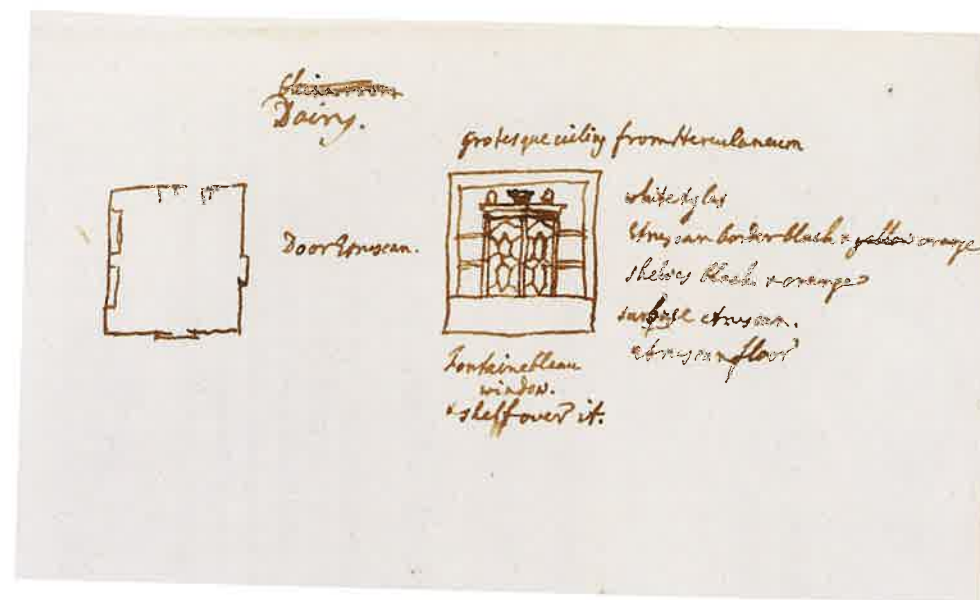 Dairy.
grotesque ceiling from Herculaneum
white tyles
Etruscan border black & yellow orange
Door Etruscan.
shelves black & orange
surbase etruscan.
etruscan floor
Fontainebleau
window.
& shelf over it.